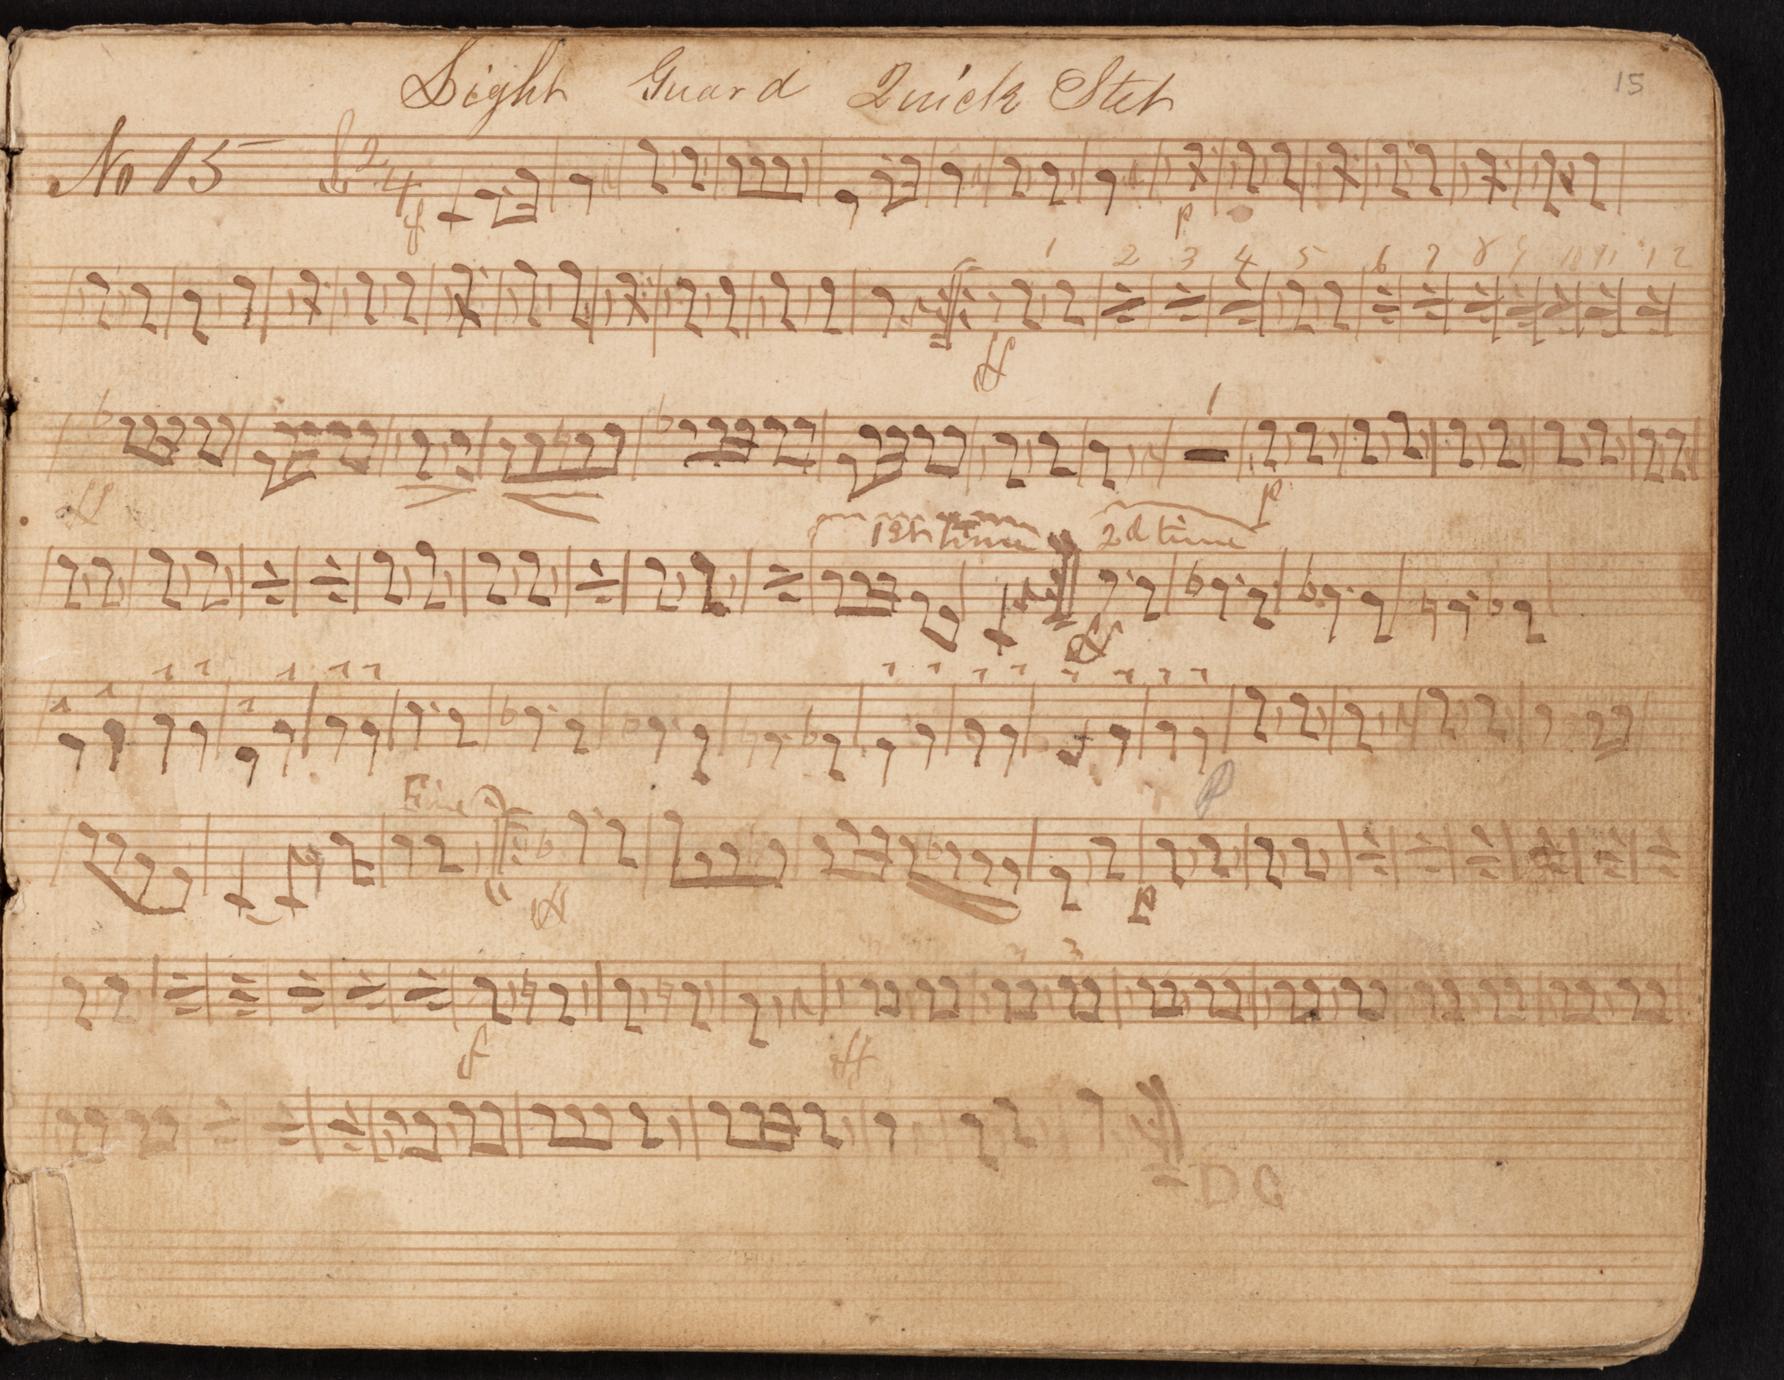 Light Guard Quick Step 15
No 15 2 4
f p
1 2 3 4 5 6 7 8 9 10 11 12
ff
1
ff p
1st time 2d time
ff
p
Fine
ff p
2 3
f ff
D C